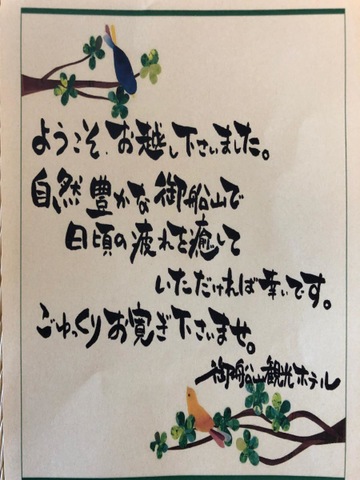 ようこそ、お越し下さいました。
自然豊かな御船山で
日頃の疲れを癒して
いただければ幸いです。
ごゆっくりお寛ぎ下さいませ。
御船山観光ホテル